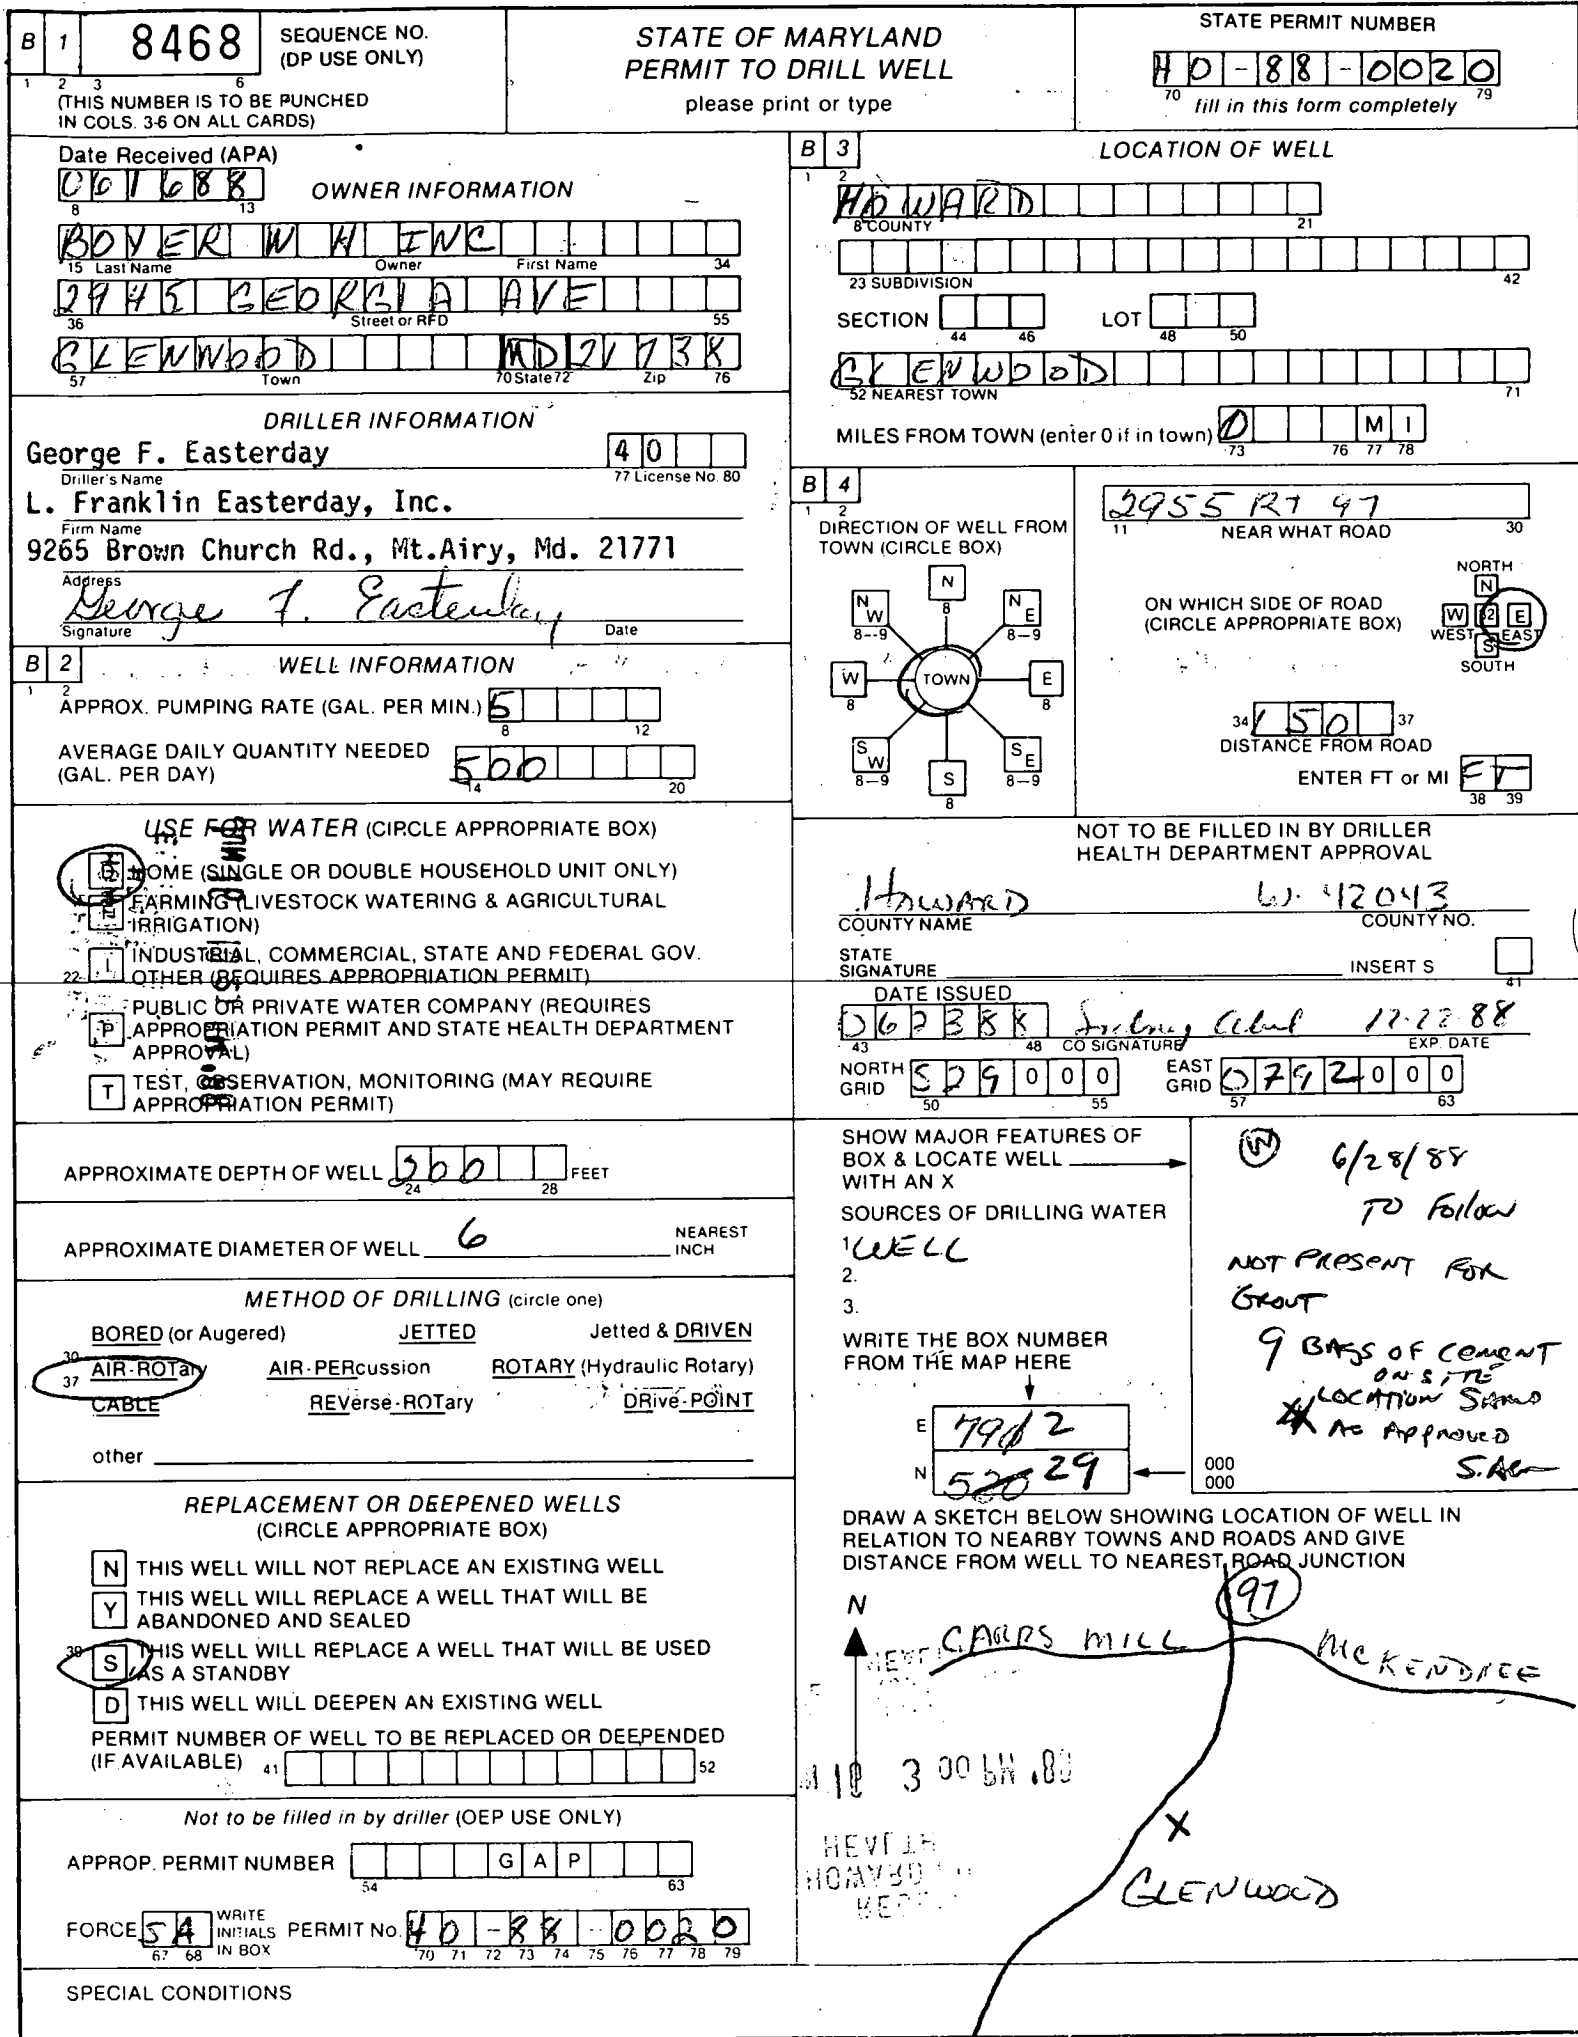 B 1 8468 SEQUENCE NO.
(DP USE ONLY)
1 2 3 6
(THIS NUMBER IS TO BE PUNCHED
IN COLS. 3-6 ON ALL CARDS)
STATE OF MARYLAND
PERMIT TO DRILL WELL
please print or type
STATE PERMIT NUMBER
HO-88-0020
70 79
fill in this form completely
Date Received (APA)
061688
8 13
OWNER INFORMATION
BOYER W H INC
15 Last Name Owner First Name 34
2945 GEORGIA AVE
36 Street or RFD 55
GLENWOOD MD 21738
57 Town 70 State 72 Zip 76
DRILLER INFORMATION
George F. Easterday 40
Driller's Name 77 License No. 80
L. Franklin Easterday, Inc.
Firm Name
9265 Brown Church Rd., Mt.Airy, Md. 21771
Address
George F. Easterday
Signature Date
B 2 WELL INFORMATION
1 2
APPROX. PUMPING RATE (GAL. PER MIN.) 5
8 12
AVERAGE DAILY QUANTITY NEEDED
(GAL. PER DAY) 500
14 20
USE FOR WATER (CIRCLE APPROPRIATE BOX)
D HOME (SINGLE OR DOUBLE HOUSEHOLD UNIT ONLY)
FARMING (LIVESTOCK WATERING & AGRICULTURAL
IRRIGATION)
22 I INDUSTRIAL, COMMERCIAL, STATE AND FEDERAL GOV.
OTHER (REQUIRES APPROPRIATION PERMIT)
P PUBLIC OR PRIVATE WATER COMPANY (REQUIRES
APPROPRIATION PERMIT AND STATE HEALTH DEPARTMENT
APPROVAL)
T TEST, OBSERVATION, MONITORING (MAY REQUIRE
APPROPRIATION PERMIT)
APPROXIMATE DEPTH OF WELL 200 FEET
24 28
APPROXIMATE DIAMETER OF WELL 6 NEAREST
INCH
METHOD OF DRILLING (circle one)
BORED (or Augered) JETTED Jetted & DRIVEN
30
37 AIR-ROTary AIR-PERcussion ROTARY (Hydraulic Rotary)
CABLE REVerse-ROTary DRive-POINT
other
REPLACEMENT OR DEEPENED WELLS
(CIRCLE APPROPRIATE BOX)
N THIS WELL WILL NOT REPLACE AN EXISTING WELL
Y THIS WELL WILL REPLACE A WELL THAT WILL BE
ABANDONED AND SEALED
39 S THIS WELL WILL REPLACE A WELL THAT WILL BE USED
AS A STANDBY
D THIS WELL WILL DEEPEN AN EXISTING WELL
PERMIT NUMBER OF WELL TO BE REPLACED OR DEEPENDED
(IF AVAILABLE) 41 52
Not to be filled in by driller (OEP USE ONLY)
APPROP. PERMIT NUMBER G A P
54 63
FORCE SA WRITE
INITIALS
IN BOX PERMIT No. HO-88-0020
67 68 70 71 72 73 74 75 76 77 78 79
SPECIAL CONDITIONS
B 3 LOCATION OF WELL
1 2
HOWARD
8 COUNTY 21
23 SUBDIVISION 42
SECTION LOT
44 46 48 50
GLENWOOD
52 NEAREST TOWN 71
MILES FROM TOWN (enter 0 if in town) 0 M I
73 76 77 78
B 4
1 2
DIRECTION OF WELL FROM
TOWN (CIRCLE BOX)
N
8
NW NE
8--9 8-9
W TOWN E
8 8
SW SE
8-9 8-9
S
8
2955 RT 97
11 NEAR WHAT ROAD 30
ON WHICH SIDE OF ROAD
(CIRCLE APPROPRIATE BOX)
NORTH
N
W 32 E
WEST EAST
S
SOUTH
34 150 37
DISTANCE FROM ROAD
ENTER FT or MI FT
38 39
NOT TO BE FILLED IN BY DRILLER
HEALTH DEPARTMENT APPROVAL
HOWARD W-42043
COUNTY NAME COUNTY NO.
STATE
SIGNATURE INSERT S
41
DATE ISSUED
062388 12-22-88
43 48 CO SIGNATURE EXP. DATE
NORTH
GRID 529000 EAST
GRID 0792000
50 55 57 63
SHOW MAJOR FEATURES OF
BOX & LOCATE WELL
WITH AN X
SOURCES OF DRILLING WATER
1 WELL
2.
3.
WRITE THE BOX NUMBER
FROM THE MAP HERE
E 7912
N 520 29
000
000
W 6/28/88
TO Follow
NOT PRESENT FOR
GROUT
9 BAGS OF CEMENT
ON SITE
LOCATION
AS APPROVED
DRAW A SKETCH BELOW SHOWING LOCATION OF WELL IN
RELATION TO NEARBY TOWNS AND ROADS AND GIVE
DISTANCE FROM WELL TO NEAREST ROAD JUNCTION
N
97
CARRS MILL MCKENDREE
X
GLENWOOD